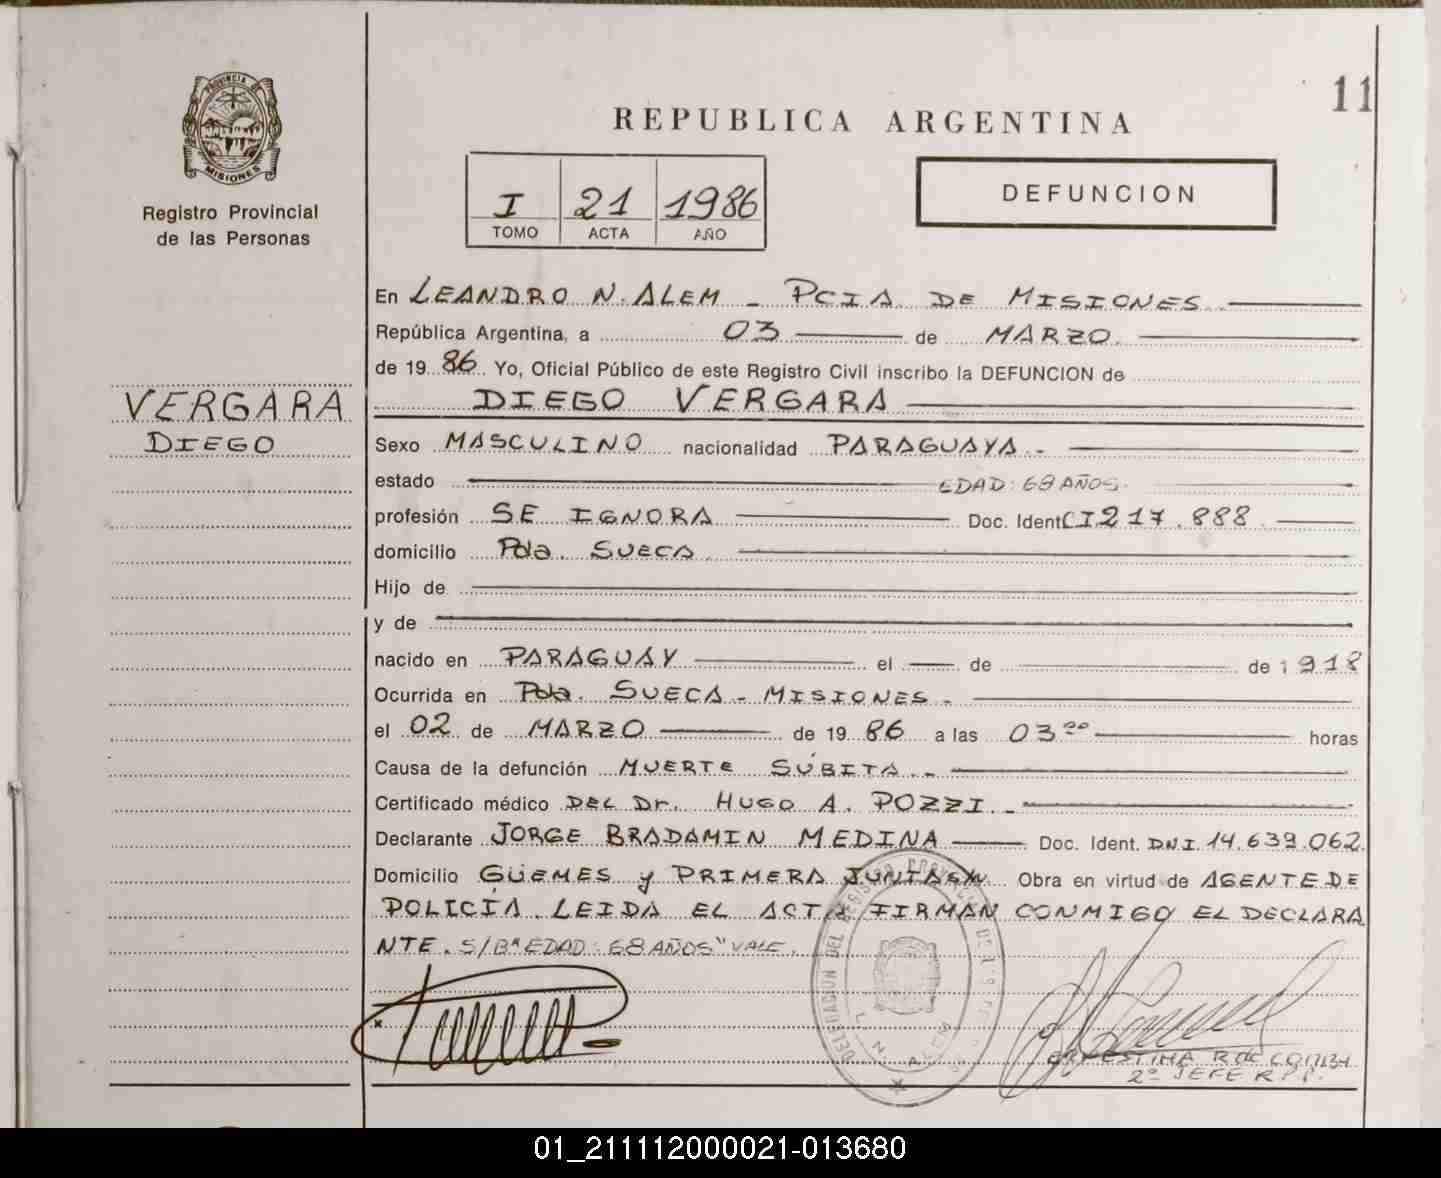 11
PROVINCIA DE
MISIONES
REPUBLICA ARGENTINA
Registro Provincial
de las Personas
I 21 1986
TOMO ACTA AÑO
DEFUNCION
En LEANDRO N. ALEM - PCIA. DE MISIONES
República Argentina, a 03 de MARZO.
de 19 86 Yo, Oficial Público de este Registro Civil inscribo la DEFUNCION de
VERGARA
DIEGO
DIEGO VERGARA
Sexo MASCULINO nacionalidad PARAGUAYA.-
estado EDAD: 68 AÑOS.
profesión SE IGNORA Doc. Ident CI 217.888
domicilio Pda. SUECA
Hijo de
y de
nacido en PARAGUAY el de de 1918
Ocurrida en Pda. SUECA - MISIONES -
el 02 de MARZO de 19 86 a las 03 00 horas
Causa de la defunción MUERTE SÚBITA.-
Certificado médico DEL Dr. HUGO A. POZZI.-
Declarante JORGE BRADAMIN MEDINA Doc. Ident. DNI. 14.639.062
Domicilio GÜEMES y PRIMERA JUNTA S/N. Obra en virtud de AGENTE DE
POLICÍA. LEIDA EL ACTA FIRMAN CONMIGO EL DECLARA
NTE. S/Bº EDAD: 68 AÑOS" VALE.
DELEGACION DEL REGISTRO PROVINCIAL DE LAS
L. N. ALEM
2º JEFE R.P.P.
01_211112000021-013680